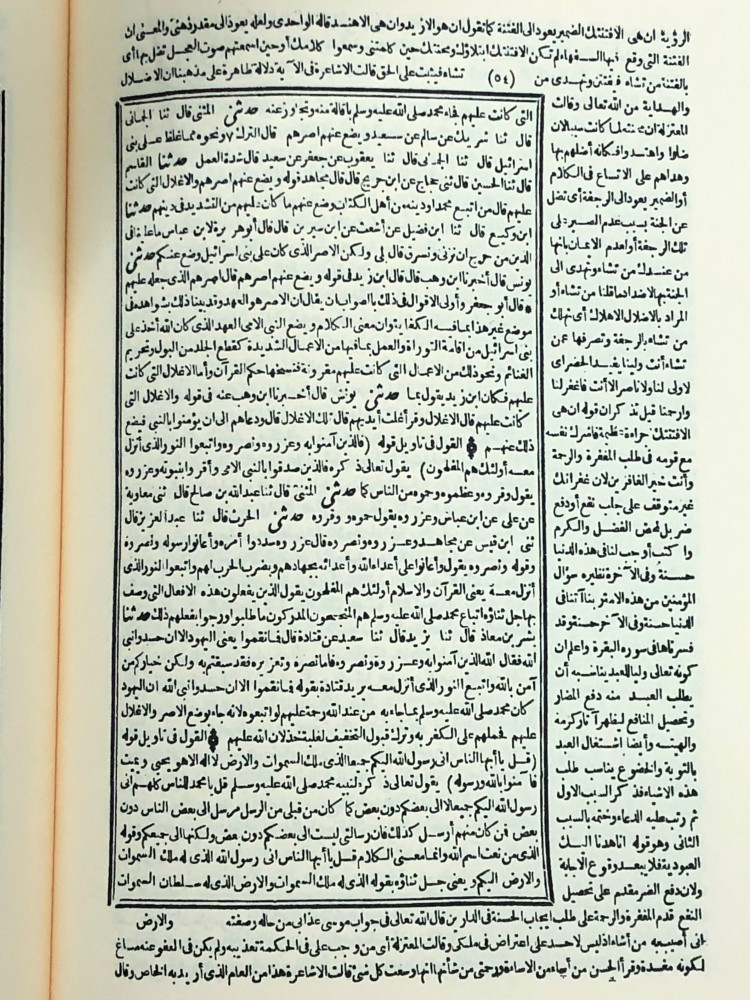 الرؤية ان هى الافتنتك الضمير يعود الى الفتنة كما تقول ان هو الازيد وان هى الاهند قاله الواحدى ولعله يعود الى مقدر ذهنى والمعنى ان
الفتنة التى وقع فيها السفهاء لم تكن الافتنتك ابتلاؤك ومحنتك حين كلمتنى وسمعوا كلامك أو حين اسمعتهم صوت العجل تضل بها أى
بالفتنة من تشاء فيفتتن وتهدى من (٥٤) تشاء فيثبت على الحق قالت الاشاعرة فى الآية دلالة ظاهرة على مذهبنا ان الاضلال
والهداية من الله تعالى وقالت
المعتزلة ان محنته لما كانت سببا لان
ضلوا واهتدوا فكأنه أضلهم بها
وهداهم على الاتساع فى الكلام
أو الضمير يعود الى الرجفة أى تضل
عن الجنة بسبب عدم الصبر على
تلك الرجفة أو لعدم الايمان بانها
من عندك من تشاء وتهدى الى
الجنة بها الاضداد ما قلنا من تشاء أو
المراد بالاضلال الاهلاك أى تهلك
من تشاء بالرجفة وتصرفها عمن
تشاء أنت ولينا يفيد الحصر أى
لا ولى لنا ولا ناصر الا أنت فاغفر لنا
وارحمنا قيل تذكر ان قوله ان هى
الافتنتك جراءة عظيمة فاشرك نفسه
مع قومه فى طلب المغفرة والرحمة
وأنت خير الغافرين لان غفرانك
غير متوقف على جلب نفع أو دفع
ضر بل لمحض الفضل والكرم
واكتب أوجب لنا فى هذه الدنيا
حسنة وفى الآخرة نظيره سؤال
المؤمنين من هذه الامة ربنا آتنا فى
الدنيا حسنة وفى الآخرة حسنة وقد
فسرناها فى سورة البقرة واعلم ان
كونه تعالى وليا للعبد يناسبه أن
يطلب العبد منه دفع المضار
وتحصيل المنافع ليظهر آثار كرمه
والهيته وأيضا اشتغال العبد
بالتوبة والخضوع يناسب طلب
هذه الاشياء فذكر السبب الاول
ثم رتب عليه الدعاء وختمه بالسبب
الثانى وهو قوله انا هدنا اليك
العبودية فلا يبعد وقوع الاجابة
ولان دفع الضر مقدم على تحصيل
النفع قدم المغفرة والرحمة على طلب ايجاب الحسنة فى الدارين قال الله تعالى فى جواب موسى عذابى من حاله وصفته والارض
انى أصيب به من أشاء اذ ليس لاحد على اعتراض فى ملكى وقالت المعتزلة أى من وجب على فى الحكمة تعذيبه ولم يكن فى العفو عنه مساغ
لكونه مفسدة وقرأ الحسن من أساء من الاساءة ورحمتى من شأنها انها وسعت كل شئ قالت الاشاعرة هذا من العام الذى أريد به الخاص وقال
التى كانت عليهم فجاء محمد صلى الله عليه وسلم باقالة منه وتجاوز عنه حدثنى المثنى قال ثنا الحمانى
قال ثنا شريك عن سالم عن سعيد ويضع عنهم اصرهم قال البول ونحوه مما غلظ على بنى
اسرائيل قال ثنا الحمانى قال ثنا يعقوب عن جعفر عن سعيد قال شدة العمل حدثنا القاسم
قال ثنا الحسين قال ثنى حجاج عن ابن جريج قال قال مجاهد قوله ويضع عنهم اصرهم والاغلال التى كانت
عليهم قال من اتبع محمدا ودينه من أهل الكتاب وضع عنهم ما كان عليهم من التشديد فى دينهم حدثنا
ابن وكيع قال ثنا ابن فضيل عن أشعث عن ابن سيرين قال قال أبو هريرة لابن عباس ما علينا فى
الدين من حرج ان نزنى ونسرق قال بلى ولكن الاصر الذى كان على بنى اسرائيل وضع عنكم حدثنى
يونس قال أخبرنا ابن وهب قال قال ابن زيد فى قوله ويضع عنهم اصرهم قال اصرهم الذى جعله عليهم
* قال أبو جعفر وأولى الاقوال فى ذلك بالصواب ان يقال ان الاصر هو العهد وقد بينا ذلك بشواهده فى
موضع غير هذا بما فيه الكفاية وان معنى الكلام ويضع النبى الامى العهد الذى كان الله أخذ على
بنى اسرائيل من اقامة التوراة والعمل بما فيها من الاعمال الشديدة كقطع الجلد من البول وتحريم
الغنائم ونحو ذلك من الاعمال التى كانت عليهم مفروضة فنسخها حكم القرآن وأما الاغلال التى كانت
عليهم فكان ابن زيد يقول بما حدثنى يونس قال أخبرنا ابن وهب عنه فى قوله والاغلال التى
كانت عليهم قال الاغلال وقرأ غلت أيديهم قال تلك الاغلال قال ودعاهم الى ان يؤمنوا بالنبى فيضع
ذلك عنهم ۞ القول فى تاويل قوله (فالذين آمنوا به وعزروه ونصروه واتبعوا النور الذى أنزل
معه أولئك هم المفلحون) يقول تعالى ذكره فالذين صدقوا بالنبى الامى وأقروا بنبوته وعزروه
يقول وقروه وعظموه وحموه من الناس كما حدثنى المثنى قال ثنا عبد الله بن صالح قال ثنى معاوية
عن على عن ابن عباس وعزروه يقول حموه ووقروه حدثنى الحرث قال ثنا عبد العزيز قال
ثنى ابن قيس عن مجاهد وعزروه ونصروه قال عزروه سددوا أمره وأعانوا رسوله ونصروه
وقوله ونصروه يقول وأعانوا على أعداء الله وأعدائه بجهادهم وبضرب الحرب لهم واتبعوا النور الذى
أنزل معه يعنى القرآن والاسلام أولئك هم المفلحون يقول الذين يفعلون هذه الافعال التى وصف
بها جل ثناؤه اتباع محمد صلى الله عليه وسلم هم المنجحون المدركون ما طلبوا ورجوا بفعلهم ذلك حدثنا
بشر بن معاذ قال ثنا يزيد قال ثنا سعيد عن قتادة قال فما نقموا يعنى اليهود الا ان حسدوا نبى
الله فقال الله الذين آمنوا به وعزروه ونصروه فاما نصره وتعزيره فقد سبقتم به ولكن خياركم من
آمن بالله واتبع النور الذى أنزل معه يريد قتادة بقوله فما نقموا الا ان حسدوا نبى الله ان اليهود
كان محمد صلى الله عليه وسلم بما جاء به من عند الله رحمة عليهم لو اتبعوه لانه جاء بوضع الاصر والاغلال
عليهم فحملهم على الكفر به وترك قبول التخفيف لغلبة خذلان الله عليهم ۞ القول فى تاويل قوله
(قل يا أيها الناس انى رسول الله اليكم جميعا الذى له ملك السموات والارض لا اله الا هو يحيى ويميت
فآمنوا بالله ورسوله) يقول تعالى ذكره لنبيه محمد صلى الله عليه وسلم قل يا محمد للناس كلهم انى
رسول الله اليكم جميعا لا الى بعضكم دون بعض كما كان من قبلى من الرسل مرسل الى بعض الناس دون
بعض فمن كان منهم أرسل كذلك فان رسالتى ليست الى بعضكم دون بعض ولكنها الى جميعكم وقوله
الذى من نعت اسم الله وانما معنى الكلام قل يا أيها الناس انى رسول الله الذى له ملك السموات
والارض اليكم ويعنى جل ثناؤه بقوله الذى له ملك السموات والارض الذى له سلطان السموات